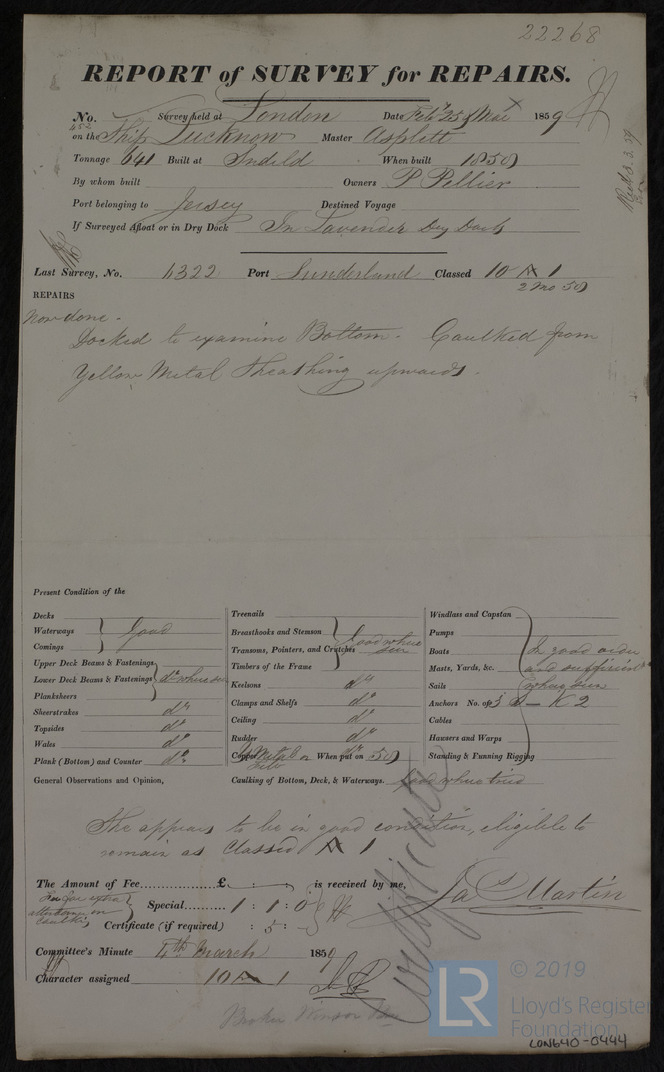 22268
REPORT of SURVEY for REPAIRS.
No. Survey held at London Date Feby 25 & Mar 1859
452
on the Ship Lucknow Master Asplett
Tonnage 641 Built at Sndrld When built 1858
By whom built Owners P Pellier
Port belonging to Jersey Destined Voyage
If Surveyed Afloat or in Dry Dock In Lavender Dry Dock
Last Survey, No. 4322 Port Sunderland Classed 10 A 1
2 mo 58
REPAIRS
now done.
Docked to examine Bottom. Caulked from
Yellow Metal Sheathing upwards.
Present Condition of the
Decks
Waterways Good
Comings
Upper Deck Beams & Fastenings
Lower Deck Beams & Fastenings do where seen
Planksheers
Sheerstrakes do
Topsides do
Wales do
Plank (Bottom) and Counter do
Treenails
Breasthooks and Stemson Good where
Transoms, Pointers, and Crutches seen
Timbers of the Frame
Keelsons do
Clamps and Shelfs do
Ceiling do
Rudder do
Copper Y Metal or When put on 58
Windlass and Capstan
Pumps
Boats In good order
Masts, Yards, &c. and sufficient
Sails where seen
Anchors No. of 3 B — K 2
Cables
Hausers and Warps
Standing & Running Rigging
General Observations and Opinion, Caulking of Bottom, Deck, & Waterways. Good where tried
She appears to be in good condition, eligible to
remain as Classed A 1
The Amount of Fee £ : : is received by me,
Jas Martin
See for extra attendance on caulking
Special 1 : 1 : 0
Certificate (if required) : 5 :
Certificate
Committee's Minute 4th March 1859
Character assigned 10 A 1
Broker Winsor
LR
© 2019
Lloyd's Register
Foundation
LON640-0444